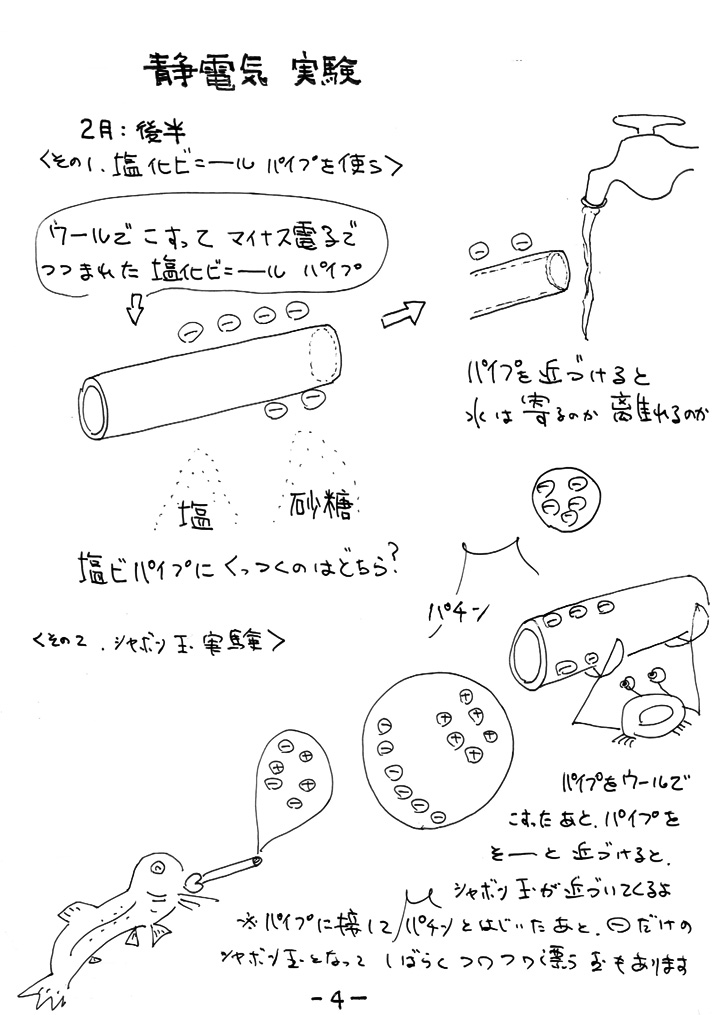 静電気 実験
2月:後半
<その1. 塩化ビニール パイプを使う>
ウールで こすって マイナス電子で
つつまれた 塩化ビニール パイプ
パイプを 近づけると
水は 寄るのか 離れるのか
塩
砂糖
塩ビパイプに くっつくのはどちら?
パチン
<その2. シャボン玉 実験>
パイプをウールで
こすったあと、パイプを
そーっと 近づけると、
シャボン玉が近づいてくるよ
※パイプに接して パチンとはじいたあと、⊖だけの
シャボン玉となって しばらく フワフワ漂う 玉もあります
-4-